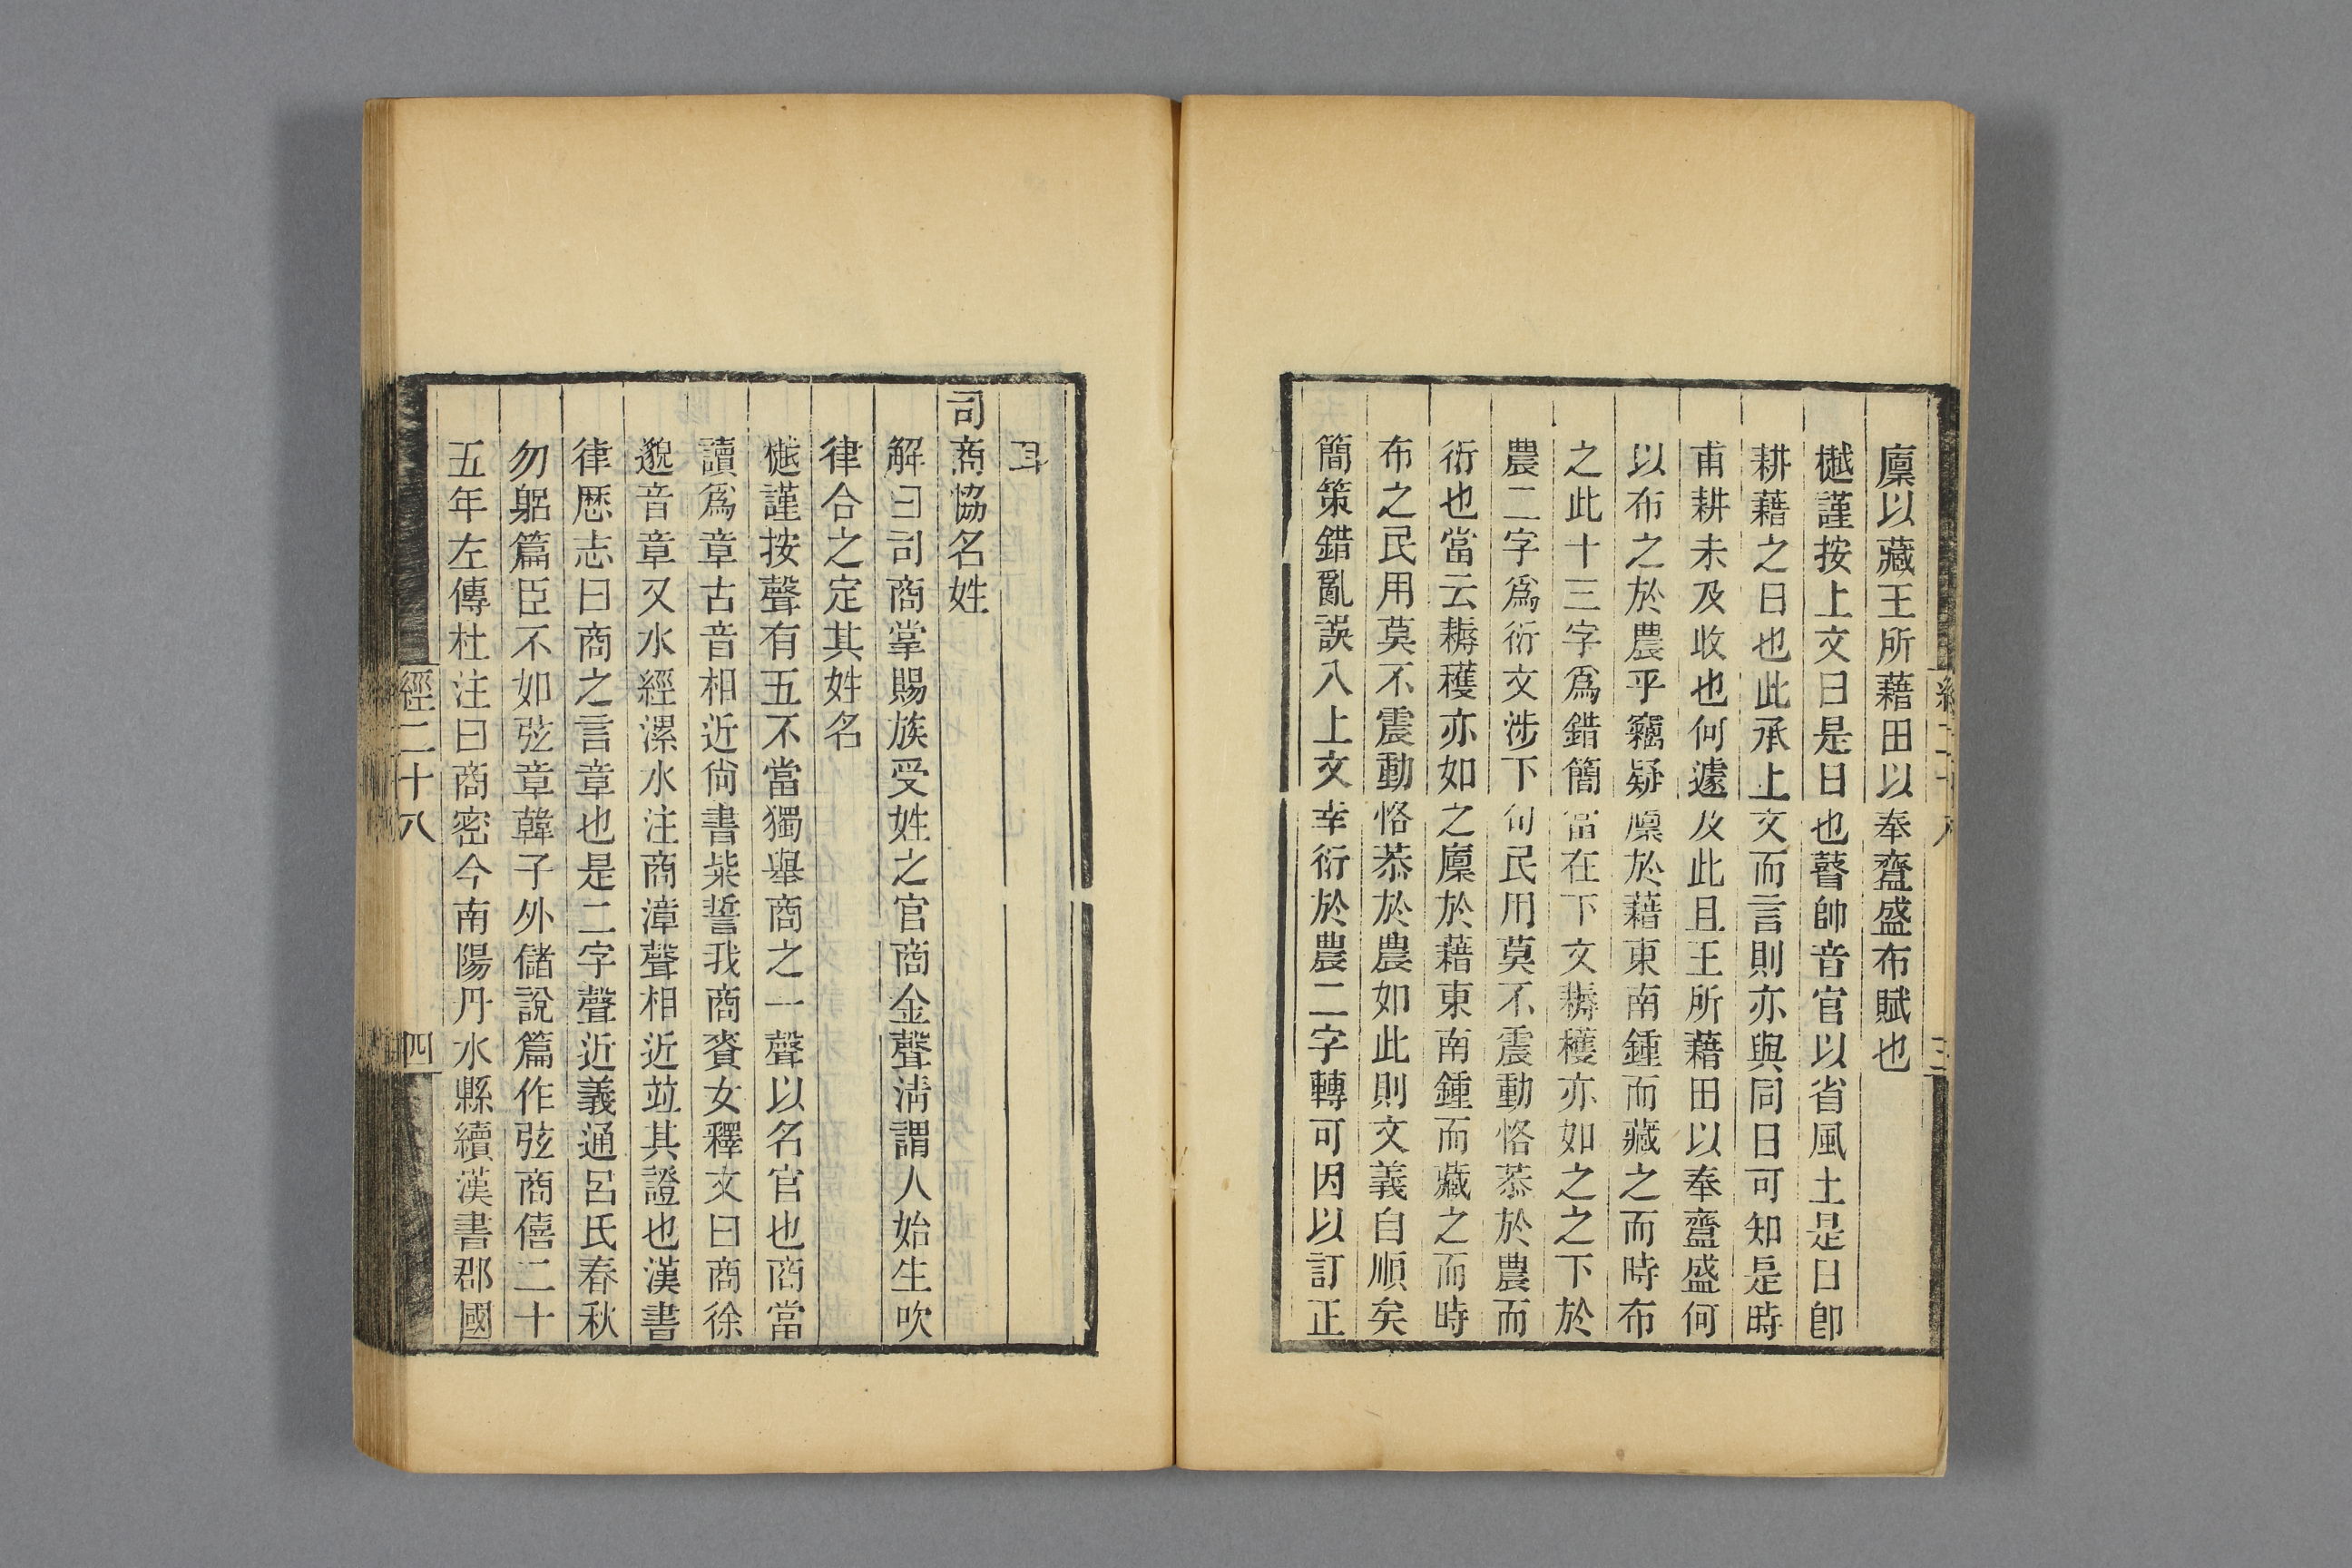 廩以藏王所藉田以奉齍盛布賦也
樾謹按上文曰是日也瞽帥音官以省風土是日卽
耕藉之日也此承上文而言則亦與同日可知是時
甫耕未及收也何遽及此且王所藉田以奉齍盛何
以布之於農乎竊疑廩於藉東南鍾而藏之而時布
之此十三字爲錯簡當在下文耨穫亦如之之下於
農二字爲衍文涉下句民用莫不震動恪恭於農而
衍也當云耨穫亦如之廩於藉東南鍾而藏之而時
布之民用莫不震動恪恭於農如此則文義自順矣
簡策錯亂誤入上文幸衍於農二字轉可因以訂正
耳
司商協名姓
解曰司商掌賜族受姓之官商金聲淸謂人始生吹
律合之定其姓名
樾謹按聲有五不當獨舉商之一聲以名官也商當
讀爲章古音相近尙書柴誓我商賚女釋文曰商徐
邈音章又水經漯水注商漳聲相近竝其證也漢書
律厯志曰商之言章也是二字聲近義通呂氏春秋
勿躳篇臣不如弦章韓子外儲說篇作弦商僖二十
五年左傳杜注曰商密今南陽丹水縣續漢書郡國
經二十八
四